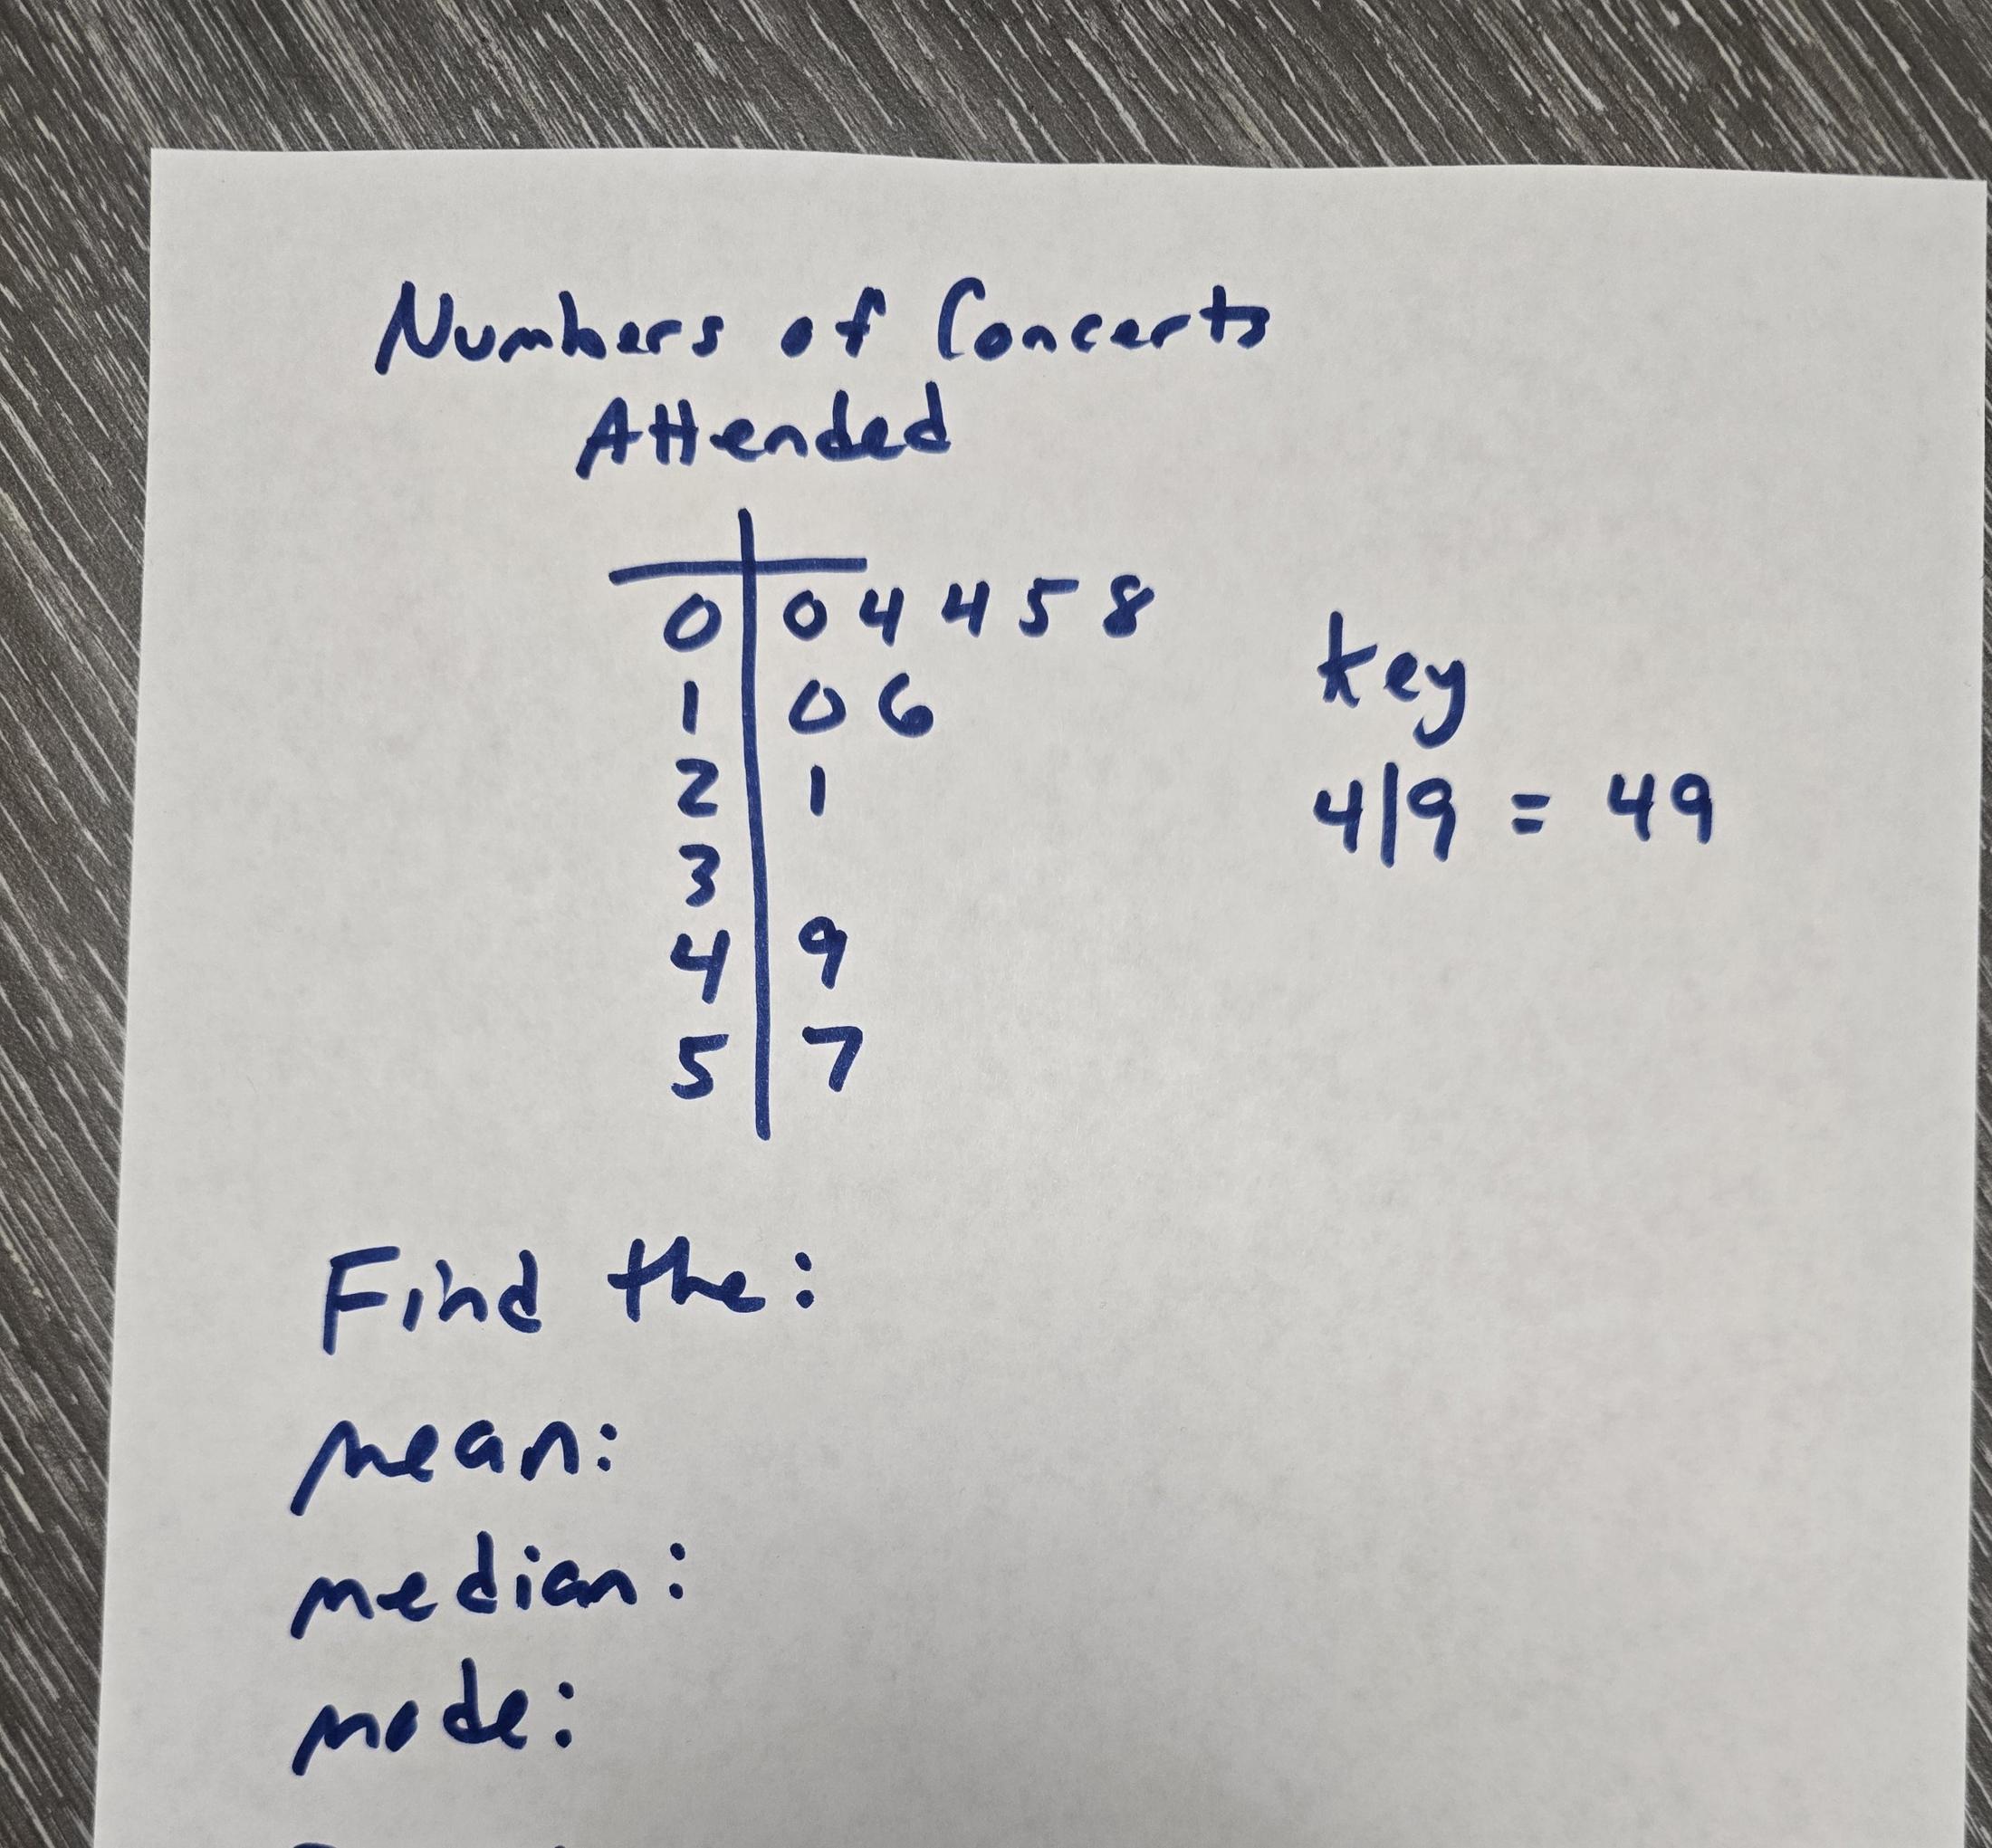 Numbers of Concerts
Attended
0 | 0 4 4 5 8
1 | 0 6
2 | 1
3 |
4 | 9
5 | 7
key
4|9 = 49
Find the:
mean:
median:
mode: